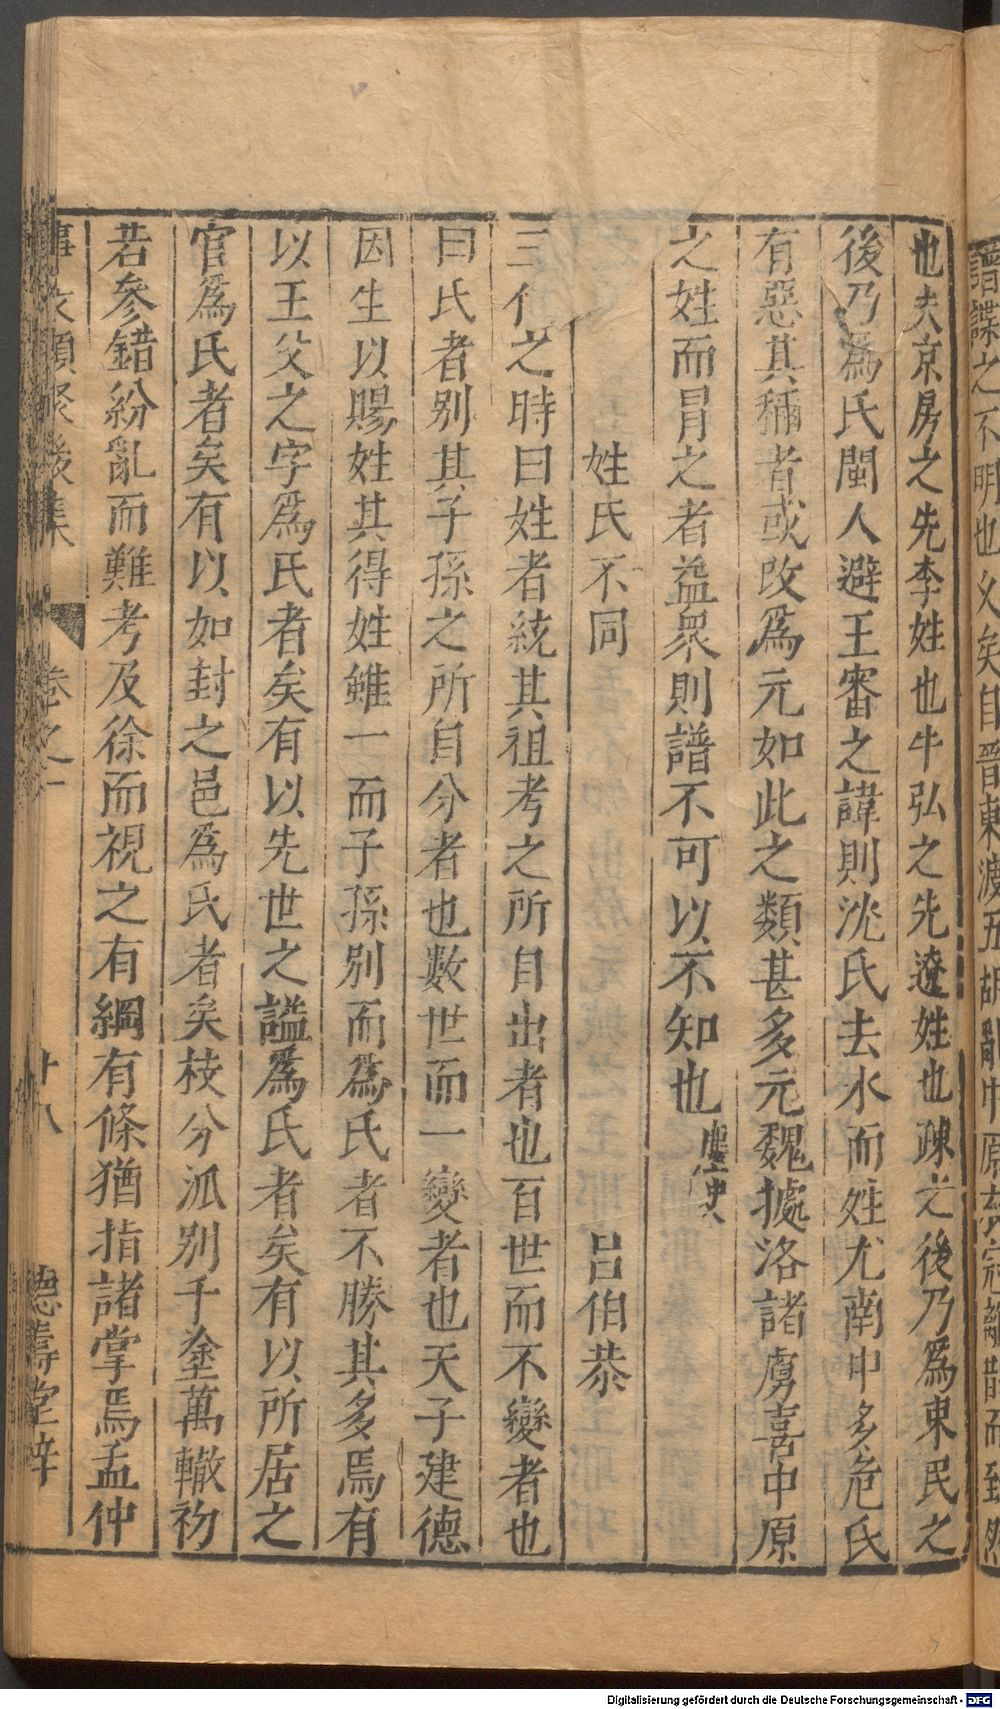 譜諜之不明也乆矣自晉東渡五胡亂中原衣冠離散而致然
也夫京房之先李姓也牛弘之先遼姓也疎之後乃爲東民之
後乃爲氏閩人避王審之諱則沈氏去水而姓尤南中多危氏
有惡其稱者或改爲元如此之類甚多元魏據洛諸虜喜中原
之姓而冒之者益衆則譜不可以不知也塵史
姓氏不同 吕伯恭
三代之時曰姓者統其祖考之所自出者也百世而不變者也
曰氏者别其子孫之所自分者也數世而一變者也天子建德
因生以賜姓其得姓雖一而子孫别而爲氏者不勝其多焉有
以王父之字爲氏者矣有以先世之謚爲氏者矣有以所居之
官爲氏者矣有以如封之邑爲氏者矣枝分泒别千塗萬轍初
若參錯紛亂而難考及徐而視之有綱有條猶指諸掌焉孟仲
事文類聚後集 卷之一 十八 德壽堂梓
Digitalisierung gefördert durch die Deutsche Forschungsgemeinschaft - DFG